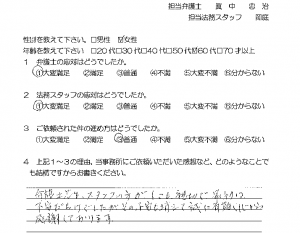 担当弁護士 真 中
担当法務スタッフ
性別を教えて下さい。□男性 ☑女性
年齢を教えて下さい □20代□30代□40代□50代☑60代□70才以上
1 弁護士の応対はどうでしたか。
①大変満足 ②満足 ③普通 ④不満 ⑤大変不満 ⑥分からない
2 法務スタッフの応対はどうでしたか。
①大変満足 ②満足 ③普通 ④不満 ⑤大変不満 ⑥分からない
3 ご依頼された件の進め方はどうでしたか。
①大変満足 ②満足 ③普通 ④不満 ⑤大変不満 ⑥分からない
4 上記1～3の理由、当事務所にご依頼いただいた感想など、どのようなことで
も結構ですからお書きください。
弁護士先生、スタッフの方がとても親切で
感謝しております。